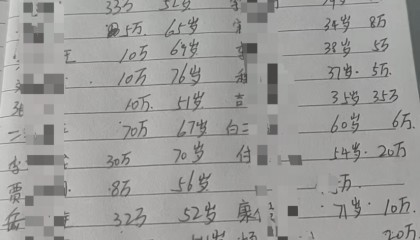 33万 52岁
5万 65岁 34岁 8万
10万 69岁 38岁 5万
10万 76岁 37岁. 5万.
10万. 51岁 吉 35岁 35万
二 70万 67岁 白二 60岁 6万.
李 30万 70岁 付 54岁. 20万
贾 8万 56岁 万.
岳 32万 52岁 康 71岁. 10万.
20万